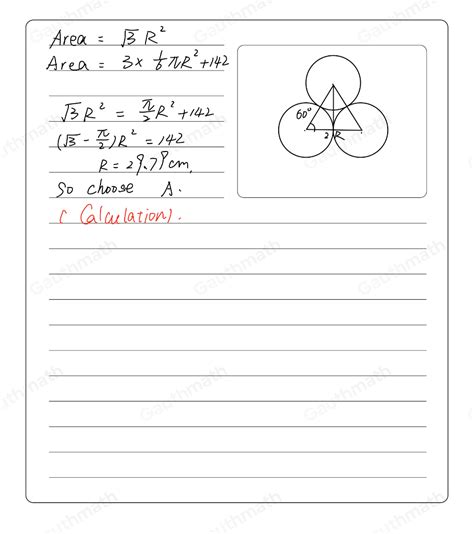 Area = √3 R²
Area = 3× 1/6 πR² +142
√3R² = π/2 R² +142
(√3 - π/2)R² = 142
R = 29.79 cm,
So choose A.
( Calculation).
60°
2R
Gauthmath